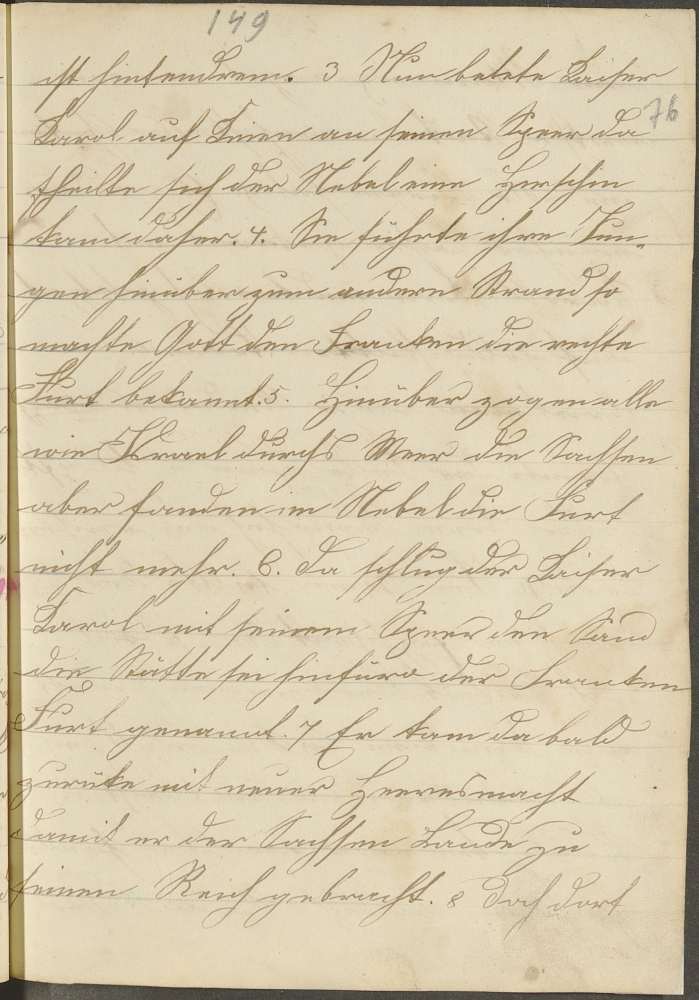 149
ist hintendrein. 3 Nun betete Kaiser
76
Karol auf Knien an seinen Speer da
theilte sich der Nebel eine Hirschin
kam daher. 4. Sie führte ihre Jun„
gen hinüber zum andern Strand so
machte Gott den Franken die rechte
Furt bekannt. 5. Hinüber zogen alle
wie Israel durchs Meer die Sachsen
aber fanden im Nebel die Furt
nicht mehr. 6. Da schlug der Kaiser
Karol mit seinem Speer den Sand
die Stätte sei hinfüro der Franken
Furt genannt. 7 Er kam da bald
zurüke mit neuer Heeresmacht
damit er der Sachsen Lande zu
seinen Reich gebracht. 8 Doch dort